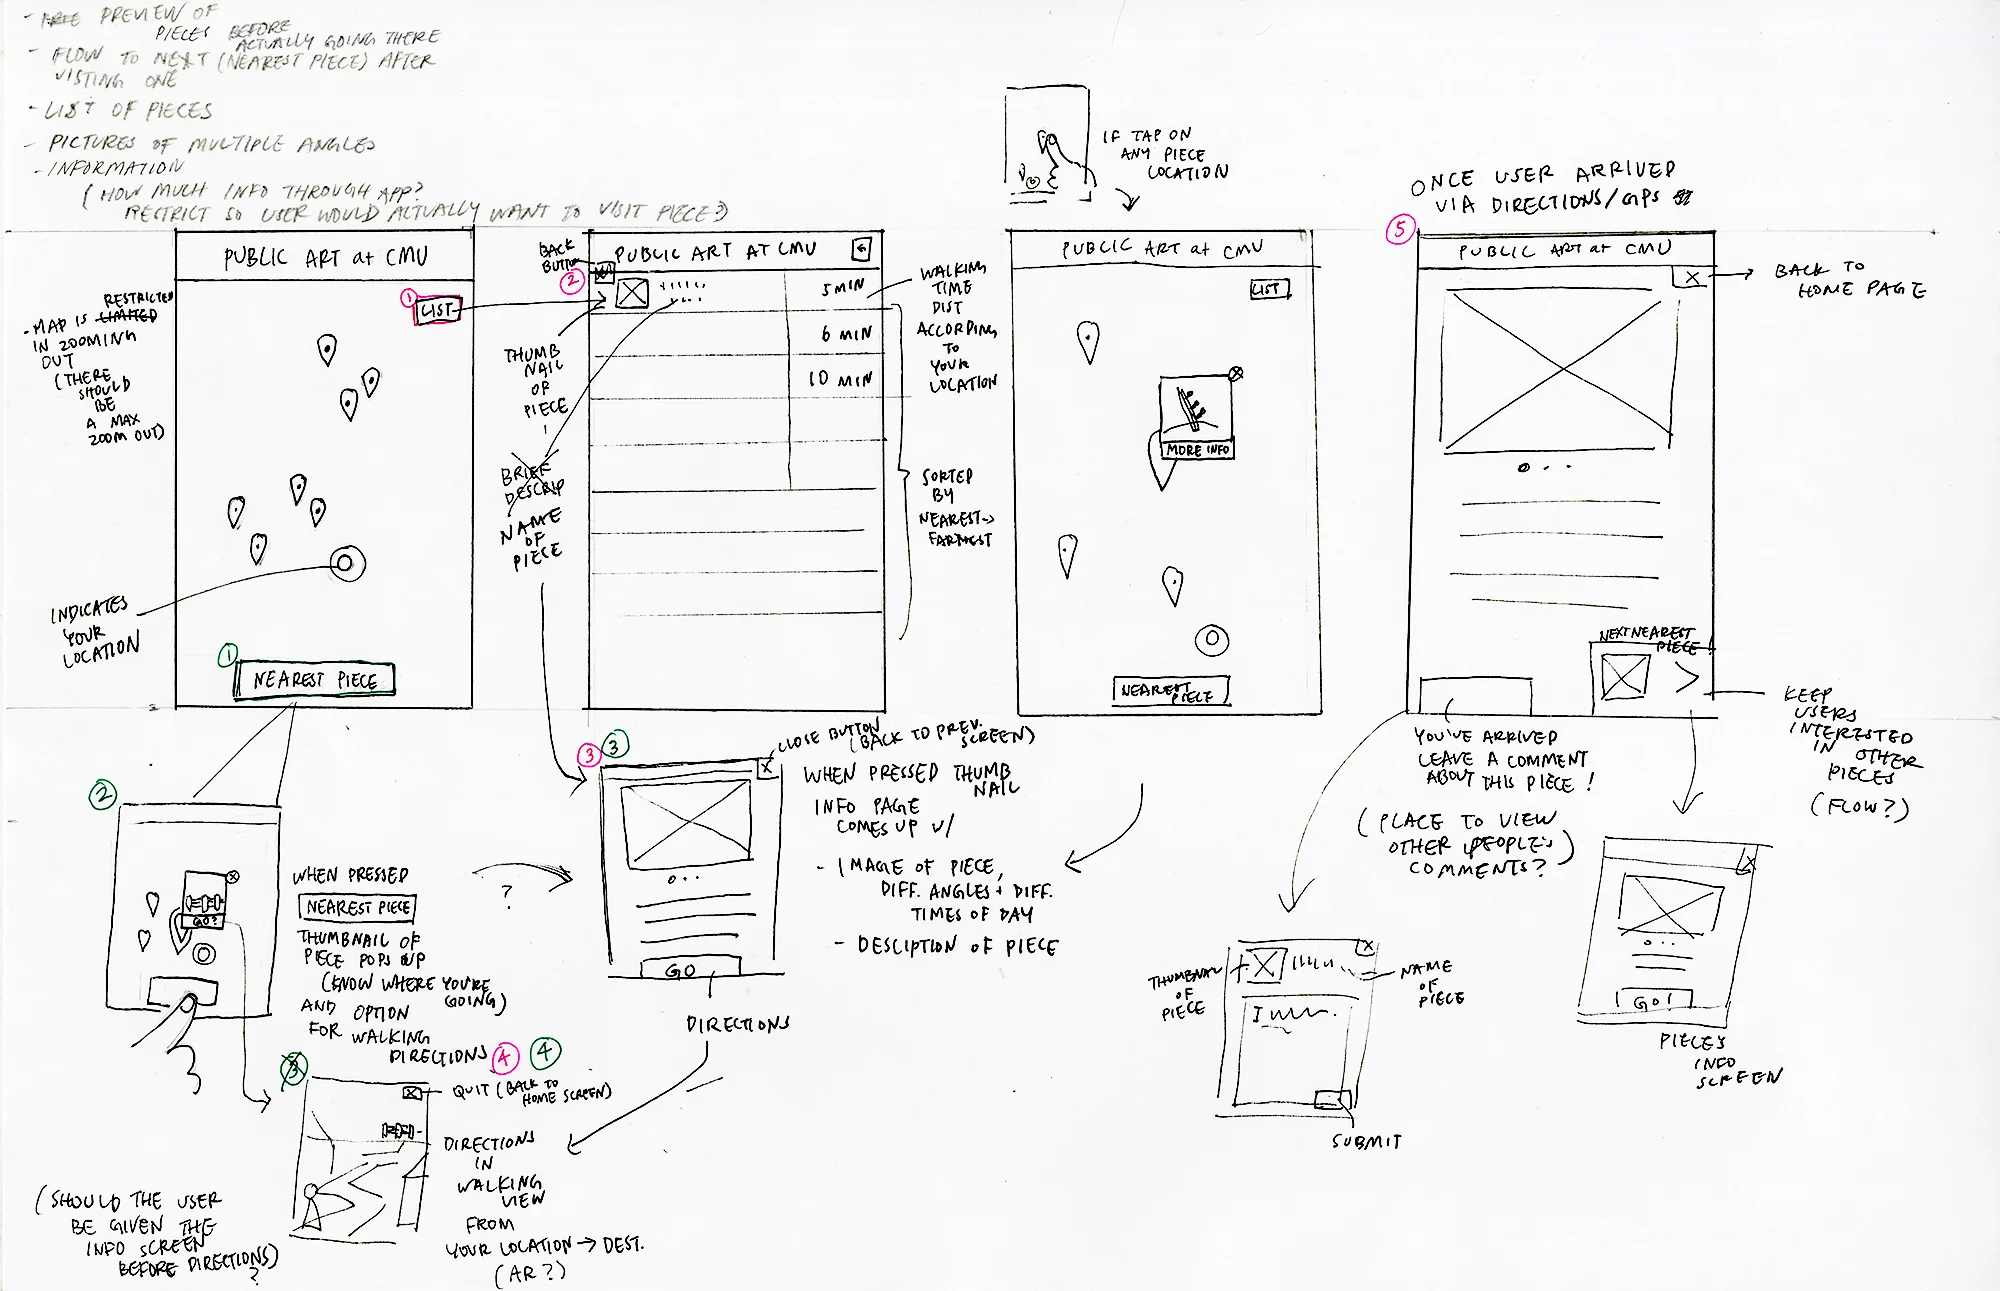 - FREE PREVIEW OF
PIECES BEFORE
ACTUALLY GOING THERE
- FLOW TO NEXT (NEAREST PIECE) AFTER
VISTING ONE
- LIST OF PIECES
- PICTURES OF MULTIPLE ANGLES
- INFORMATION
(HOW MUCH INFO THROUGH APP?
RESTRICT SO USER WOULD ACTUALLY WANT TO VISIT PIECE?)
PUBLIC ART at CMU
RESTRICTED
- MAP IS LIMITED
IN ZOOMING
OUT
(THERE
SHOULD
BE
A MAX
ZOOM OUT)
1
LIST
INDICATES
YOUR
LOCATION
1
NEAREST PIECE
BACK
BUTTON
2
PUBLIC ART AT CMU
5 MIN
6 MIN
10 MIN
THUMB
NAIL
OF
PIECE
BRIEF
DESCRIP
NAME
OF
PIECE
WALKING
TIME
DIST
ACCORDING
TO
YOUR
LOCATION
SORTED
BY
NEAREST->
FARTHEST
IF TAP ON
ANY PIECE
LOCATION
PUBLIC ART at CMU
LIST
MORE INFO
NEAREST
PIECE
ONCE USER ARRIVED
VIA DIRECTIONS/GPS
5
PUBLIC ART at CMU
X
BACK TO
HOME PAGE
NEXT NEAREST
PIECE!
KEEP
USERS
INTERESTED
IN OTHER
PIECES
(FLOW?)
YOU'VE ARRIVED
LEAVE A COMMENT
ABOUT THIS PIECE!
(PLACE TO VIEW
OTHER PEOPLE'S
COMMENTS?)
2
GO?
WHEN PRESSED
NEAREST PIECE
THUMBNAIL OF
PIECE POPS UP
(KNOW WHERE YOU'RE
GOING)
AND OPTION
FOR WALKING
DIRECTIONS
?
3
3
CLOSE BUTTON
(BACK TO PREV.
SCREEN)
X
WHEN PRESSED THUMB
NAIL
INFO PAGE
COMES UP W/
- IMAGE OF PIECE,
DIFF. ANGLES + DIFF.
TIMES OF DAY
- DESCIPTION OF PIECE
GO
DIRECTIONS
3
4
4
X
QUIT (BACK TO
HOME SCREEN)
DIRECTIONS
IN
WALKING
VIEW
FROM
YOUR LOCATION → DEST.
(AR?)
(SHOULD THE USER
BE GIVEN THE
INFO SCREEN
BEFORE DIRECTIONS)
?
THUMBNAIL
OF
PIECE
X
NAME
OF
PIECE
SUBMIT
X
GO!
PIECE'S
INFO
SCREEN